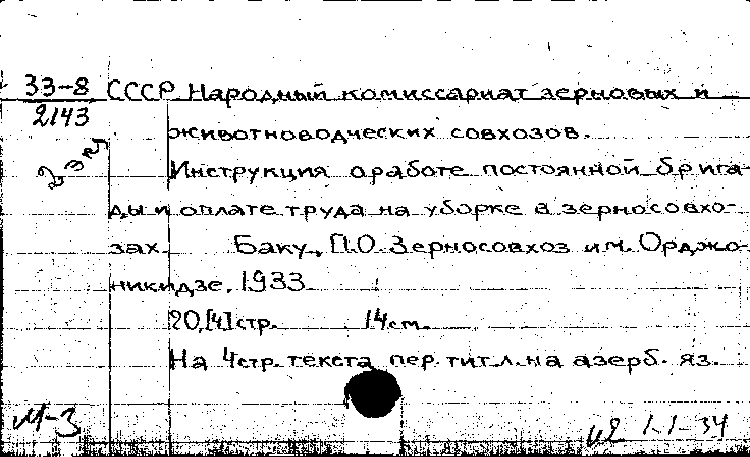 33-8 СССР Народный комиссариат зерновых и
2143
животноводческих совхозов.
2 экз
Инструкция о работе постоянной брига-
ды и оплате труда на уборке в зерносовхо-
зах. Баку, П.О. Зерносовхоз им. Орджо-
никидзе, 1933.
20,[4] стр. 14 см.
На 4 стр. текста пер. тит. л. на азерб. яз.
И-3
1-1-34